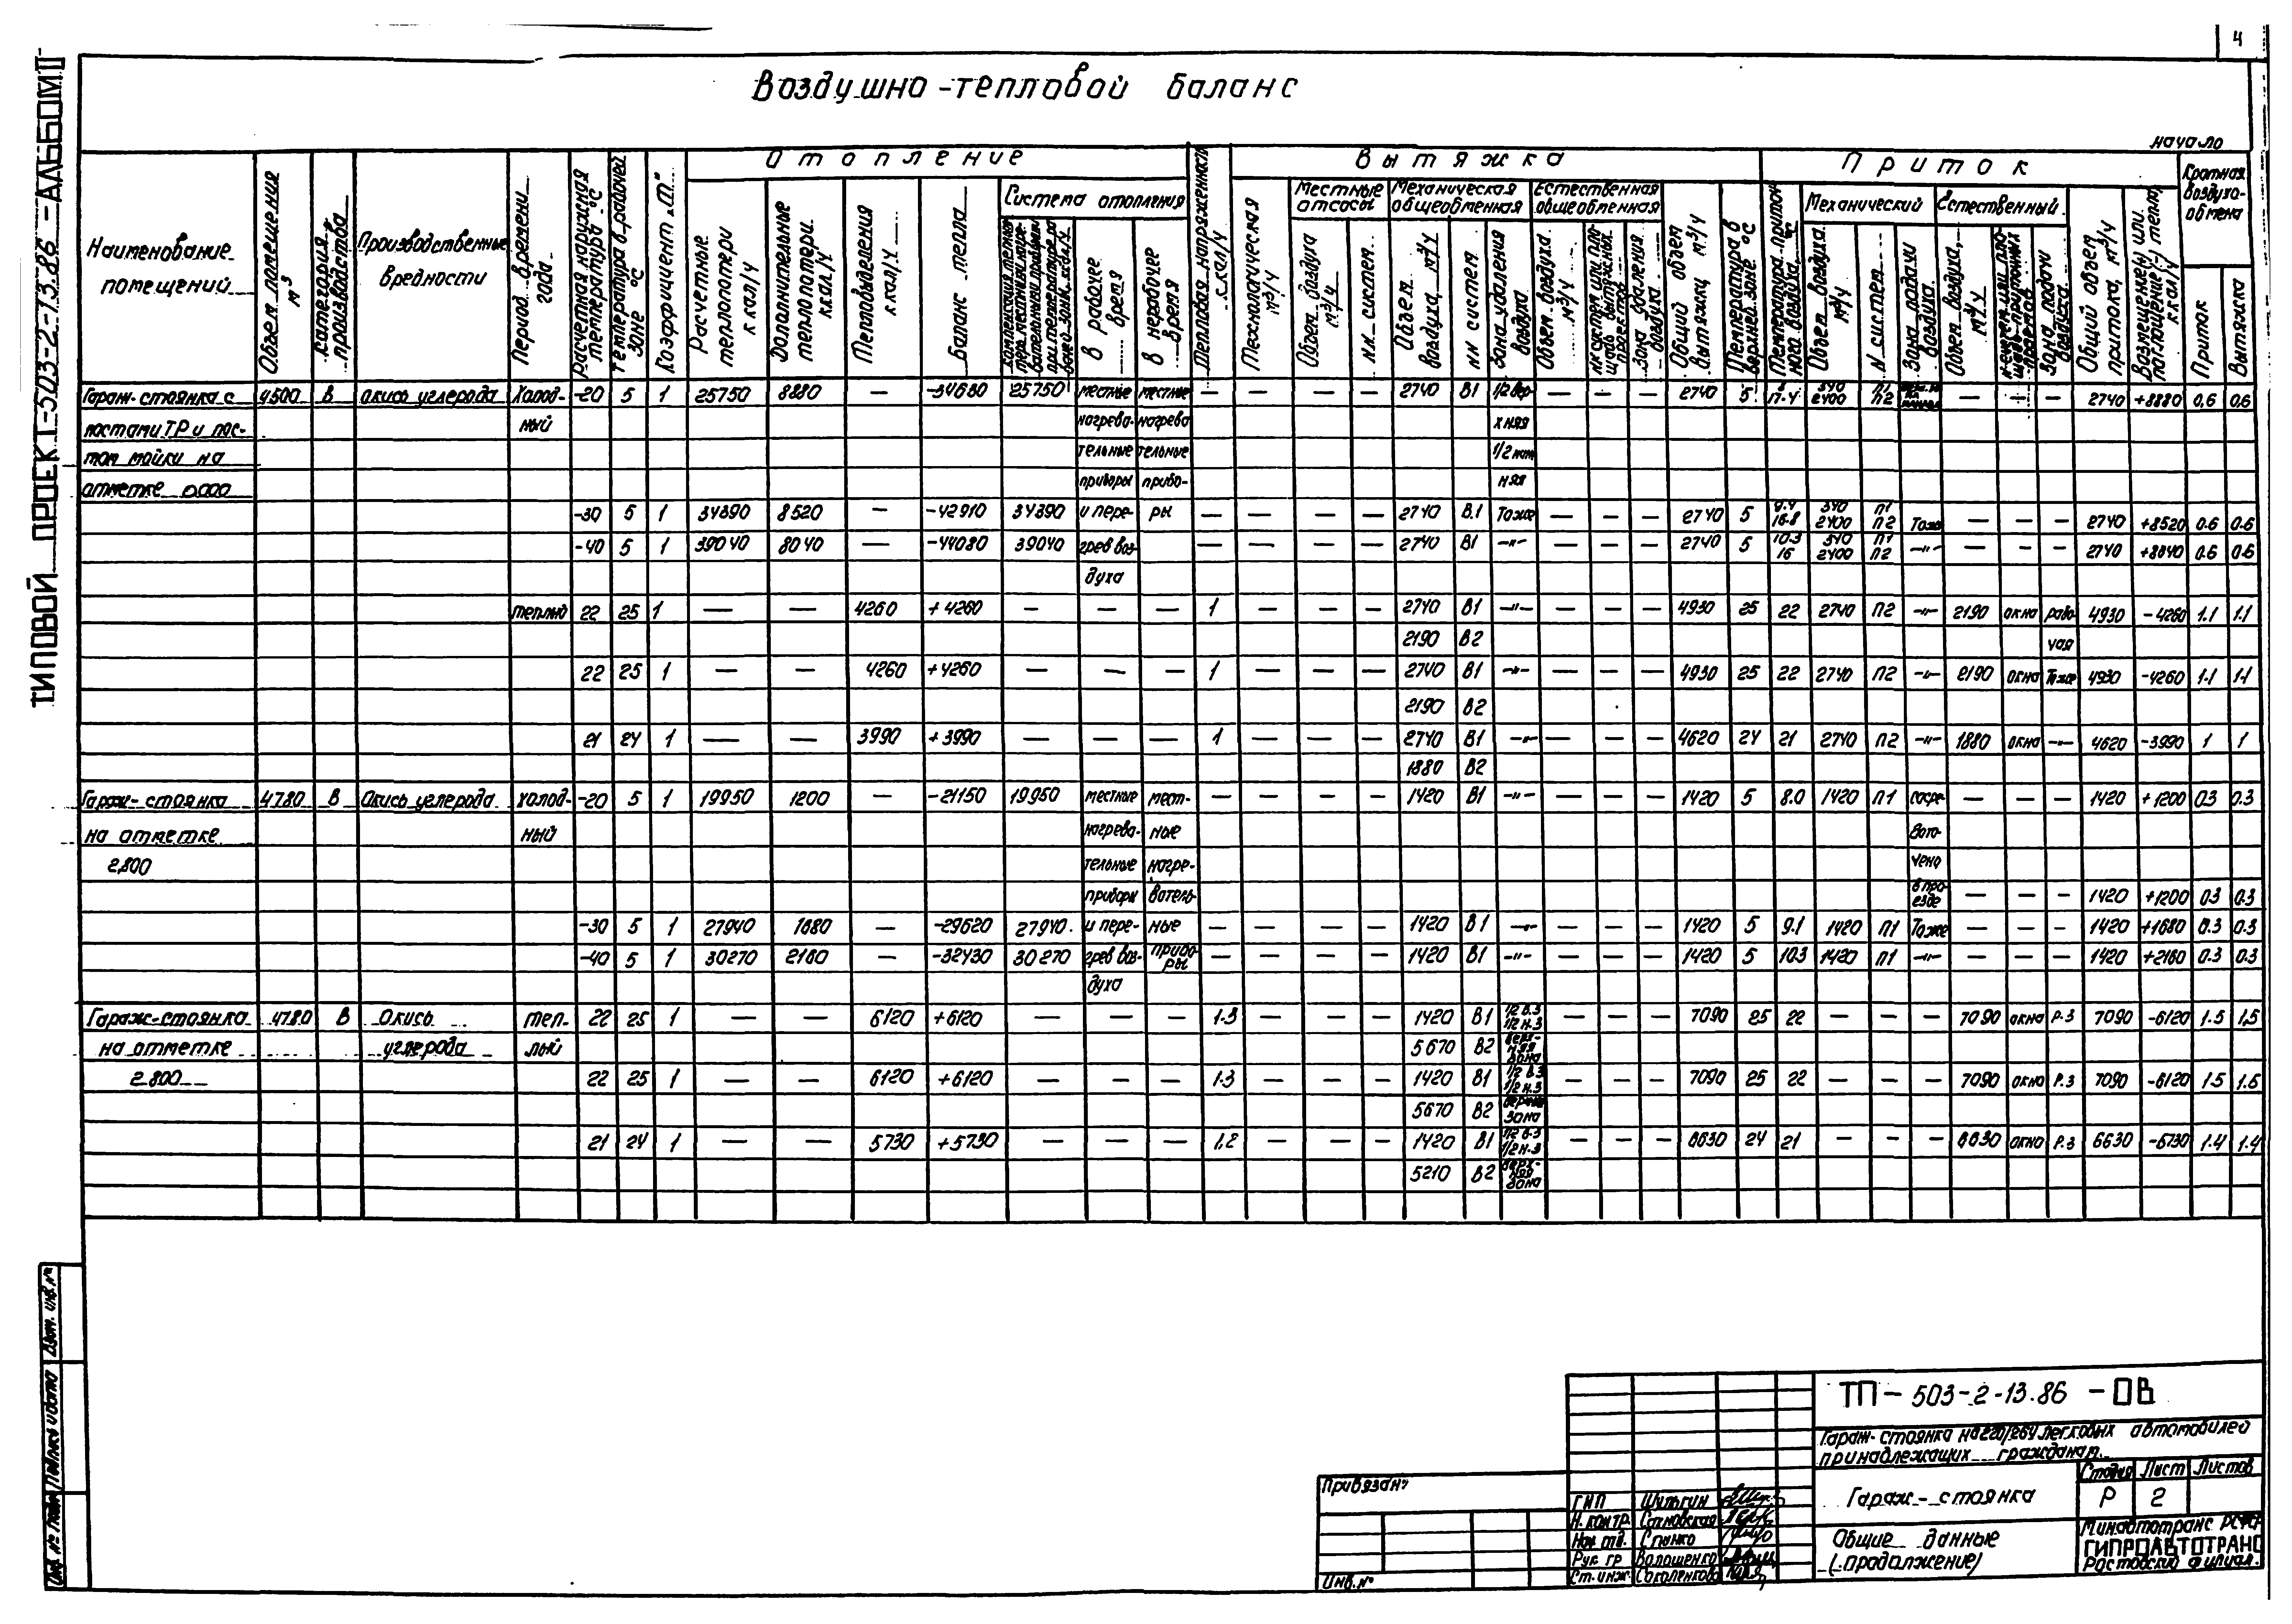 4
ТИПОВОЙ ПРОЕКТ-503-2-13.86 - АЛЬБОМ II
Воздушно-тепловой баланс
начало
Наименование помещений
Объем помещения м³
Категория производства
Производственные вредности
Период времени года
Расчетная наружная температура °С
Температура в рабочей зоне °С
Коэффициент „m"
Отопление
Расчетные теплопотери ккал/ч
Дополнительные теплопотери ккал/ч
Тепловыделения ккал/ч
Баланс тепла
Система отопления
В рабочее время
В нерабочее время
Тепловая напряженность
Вытяжка
Технологическая м³/ч
Местные отсосы
Объем воздуха м³/ч
NN систем
Механическая общеобменная
Объем воздуха, м³/ч
NN систем
Зона удаления воздуха
Естественная общеобменная
Объем воздуха м³/ч
Зона удаления воздуха
Общий объем вытяжки м³/ч
Температура в верхней зоне °С
Приток
Температура приточного воздуха, °С
Механический
Объем воздуха м³/ч
N систем
Зона подачи воздуха
Естественный
Объем воздуха, м³/ч
Зона подачи воздуха
Общий объем притока, м³/ч
Кратная воздухо-обмена
Приток
Вытяжка
Гараж-стоянка с 4500 В Окись углерода Холод- -20 5 1 25750 8880 — -34630 25750 местные местные — — — — 2740 В1 1/2 вер- — — — 2740 5 340 2400 П1 П2 — — — 2740 +8880 0,6 0,6
постами ТР и пос- ный нагрева- нагрева хняя
том мойки на тельные тельные
отметке 0.000 приборы прибо- няя
-30 5 1 34390 8520 — -42910 34390 и пере- ры — — — — 2740 В.1 Тоже — — — 2740 5 9.4 16.8 340 2400 П1 П2 Тоже — — — 2740 +8520 0.6 0.6
-40 5 1 39040 8040 — 39040 грев воз- — — — — 2740 В1 —"— — — — 2740 5 10.3 16 340 2400 П1 П2 —"— — — — 2740 +8040 0.6 0.6
духа
теплый 22 25 1 — — 4260 +4260 — — — 1 — — — 2740 В1 —"— — — — 4930 25 22 2740 П2 —"— 2190 окна рабо- 4930 -4260 1.1 1.1
2190 В2 чая
22 25 1 — — 4260 +4260 — — — 1 — — — 2740 В1 —"— — — — 4930 25 22 2740 П2 —"— 2190 окна Тоже 4930 -4260 1.1 1.1
2190 В2
21 24 1 — — 3990 +3990 — — — 1 — — — 2740 В1 —"— — — — 4620 24 21 2740 П2 —"— 1880 окна —"— 4620 -3990 1 1
1880 В2
Гараж-стоянка 4780 В Окись углерода холод- -20 5 1 19950 1200 — -21150 19950 местные мест- — — — — 1420 В1 —"— — — — 1420 5 8.0 1420 П1 сосре- — — — 1420 +1200 0.3 0.3
на отметке ный нагрева- ные дото-
2,800 тельные нагре- чено
приборы ватель- в про-езде — — — 1420 +1200 0.3 0.3
-30 5 1 27940 1680 — -29620 27940 и пере- ные — — — — 1420 В1 —"— — — — 1420 5 9.1 1420 П1 Тоже — — — 1420 +1680 0.3 0.3
-40 5 1 30270 2160 — -32430 30270 грев воз- прибо-ры — — — — 1420 В1 —"— — — — 1420 5 10.3 1420 П1 —"— — — — 1420 +2160 0.3 0.3
духа
Гараж-стоянка 4780 В Окись теп- 22 25 1 — — 6120 +6120 — — — 1.3 — — — 1420 В1 1/2 в.з 1/2 н.з — — — 7090 25 22 — — — 7090 окна Р.З 7090 -6120 1.5 1,5
на отметке углерода лый 5670 В2 верх-няя зона
2.800 22 25 1 — — 6120 +6120 — — — 1.3 — — — 1420 В1 1/2 в.з 1/2 н.з — — — 7090 25 22 — — — 7090 окна Р.З 7090 -6120 1.5 1.5
5670 В2 верхняя зона
21 24 1 — — 5730 +5730 — — — 1,2 — — — 1420 В1 1/2 в.з 1/2 н.з — — — 6630 24 21 — — — 6630 окна Р.З 6630 1.4 1.4
5210 В2 верх-няя зона
Взам. инв. №
Подпись и дата
Инв. № подл.
Привязан
Инв.№
ГИП Шульгин
Н. контр. Сотновская
Нач. отд. Спанко
Рук. гр. Волошенко
Ст. инж. Соколенкова
ТП - 503-2-13.86 - ОВ
Гараж-стоянка на 220/264 легковых автомобилей
принадлежащих гражданам.
Гараж-стоянка
Стадия Лист Листов
Р 2
Общие данные
(продолжение)
Минавтотранс РСФСР
ГИПРОАВТОТРАНС
Ростовский филиал.